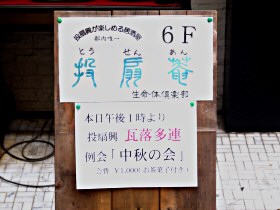 投扇興が楽しめる居酒屋
都内唯一
6F
とう せん あん
投扇菴
生命体倶楽部
本日午後1時より
投扇興 瓦落多連
例会「中秋の会」
会費 ¥1,000(お茶菓子付き)